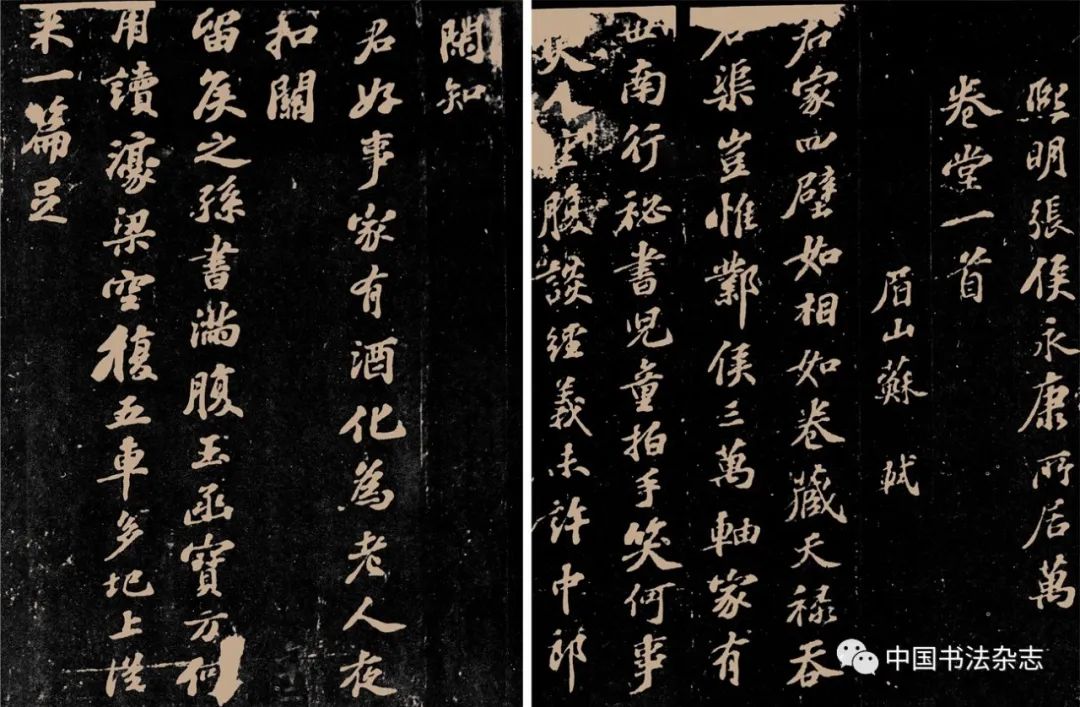 熙明張侯永康所居萬
卷堂一首
眉山蘇軾
君家四壁如相如卷藏天禄吞
石渠豈惟鄴侯三萬軸家有
世南行祕書兒童拍手笑何事
笑人空腹談經義未許中郎
閑知
君好事家有酒化為老人夜
扣關
留侯之孫書滿腹玉函寶方何
用讀濠梁空復五車多圯上從
来一篇足
中国书法杂志